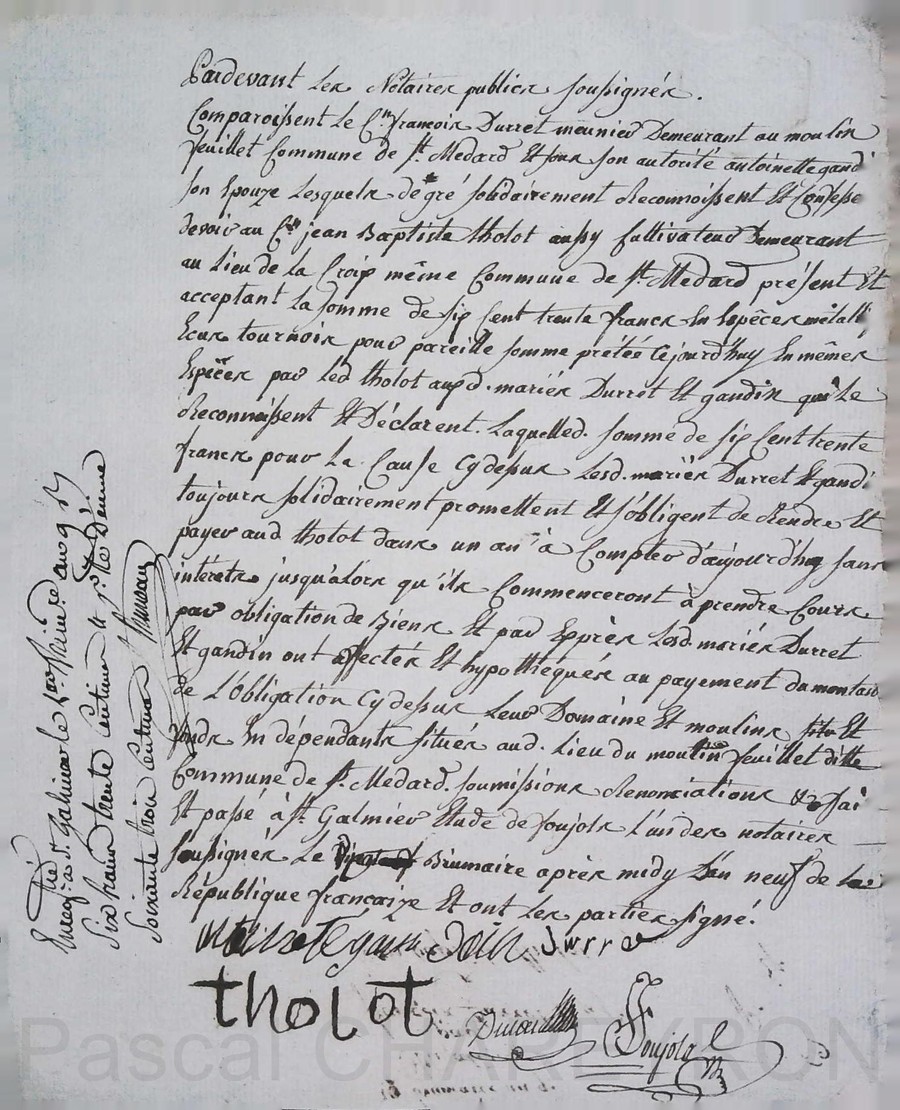 Pardevant les Notaires publics soussignés.
Comparoissent le C.en françois Durret meunier Demeurant au moulin
feuillet Commune de St. Medard Et sous son autorité antoinette gand
son Epouze Lesquels de gré solidairement Reconnoissent Et Confesse
devoir au C.en jean Baptiste tholot aussy Cultivateur Demeurant
au Lieu de la Croix même Commune de St. Medard présent Et
acceptant la somme de six Cent trente francs En Espèces métall
Ecus tournois pour pareille somme prêtée Cejourd'huy En mêmes
Espèces par Led. tholot auxd. mariés Durret Et gandin qui Le
Reconnoissent Et Déclarent. Laquelled. somme de six Cent trente
francs pour La Cause Cydessus Lesd. mariés Durret Et gandi
toujours solidairement promettent Et s'obligent de Rendre Et
payer aud tholot dans un an à Compter d'aujourd'huy sans
intérêts jusqu'alors qu'ils Commenceront à prendre Cours
par obligation de Biens Et par Exprès Lesd. mariés Durret
Et gandin ont affectés Et hypothéqués au payement du montant
de L'obligation Cydessus Leur Domaine Et moulins sits Et
fonds En dépendants situés aud. Lieu du moulin feuillet ditte
Commune de St. Medard. soumissions Renonciations &a fai
Et passé à St. Galmier Etude de soujols L'un des notaires
soussignés Le Brumaire après midy L'an neuf de la
République françaize Et ont Les parties signé.
gandin durret
tholot
Soujols
Enregtré à St. Galmier le Brumre an 9
Six francs trente Centimes Dixme
Soixante trois Centimes
Pascal CHARTRON